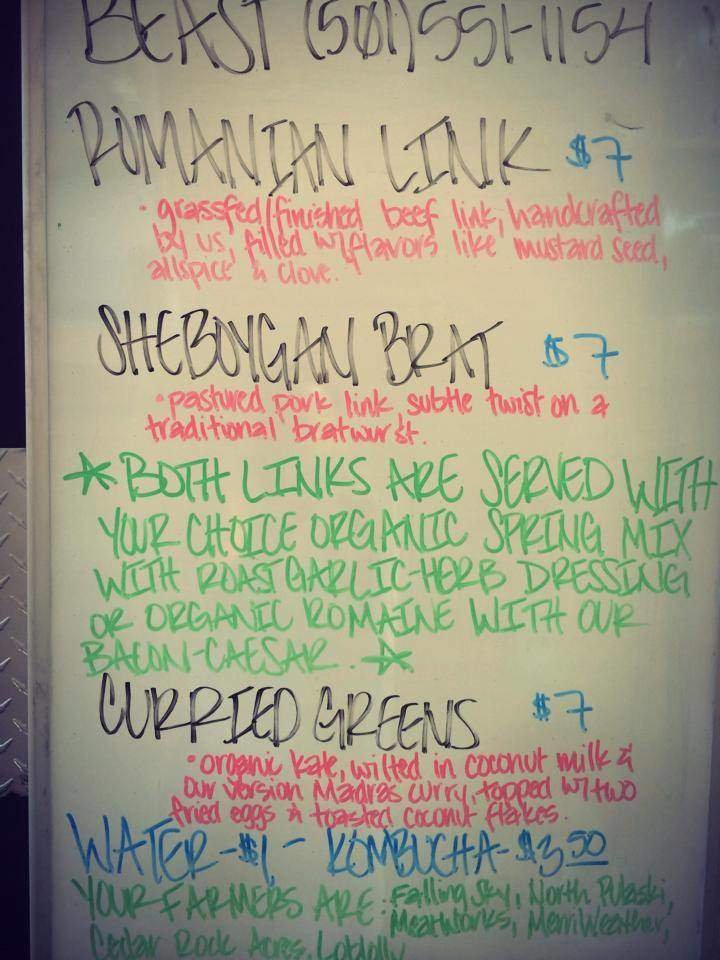 BEAST (501)551-1154
ROMANIAN LINK $7
• grassfed/finished beef link, handcrafted
by us, filled w/flavors like mustard seed,
allspice & clove.
SHEBOYGAN BRAT $7
• pastured pork link, subtle twist on a
traditional bratwurst.
* BOTH LINKS ARE SERVED WITH
YOUR CHOICE ORGANIC SPRING MIX
WITH ROAST GARLIC-HERB DRESSING
OR ORGANIC ROMAINE WITH OUR
BACON-CAESAR. *
CURRIED GREENS $7
• organic kale, wilted in coconut milk &
our version Madras curry, topped w/two
fried eggs & toasted coconut flakes.
WATER-$1, - KOMBUCHA-$3.50
YOUR FARMERS ARE: Falling Sky, North Pulaski,
MeatWorks, MerriWeather,
Cedar Rock Acres, Loblolly